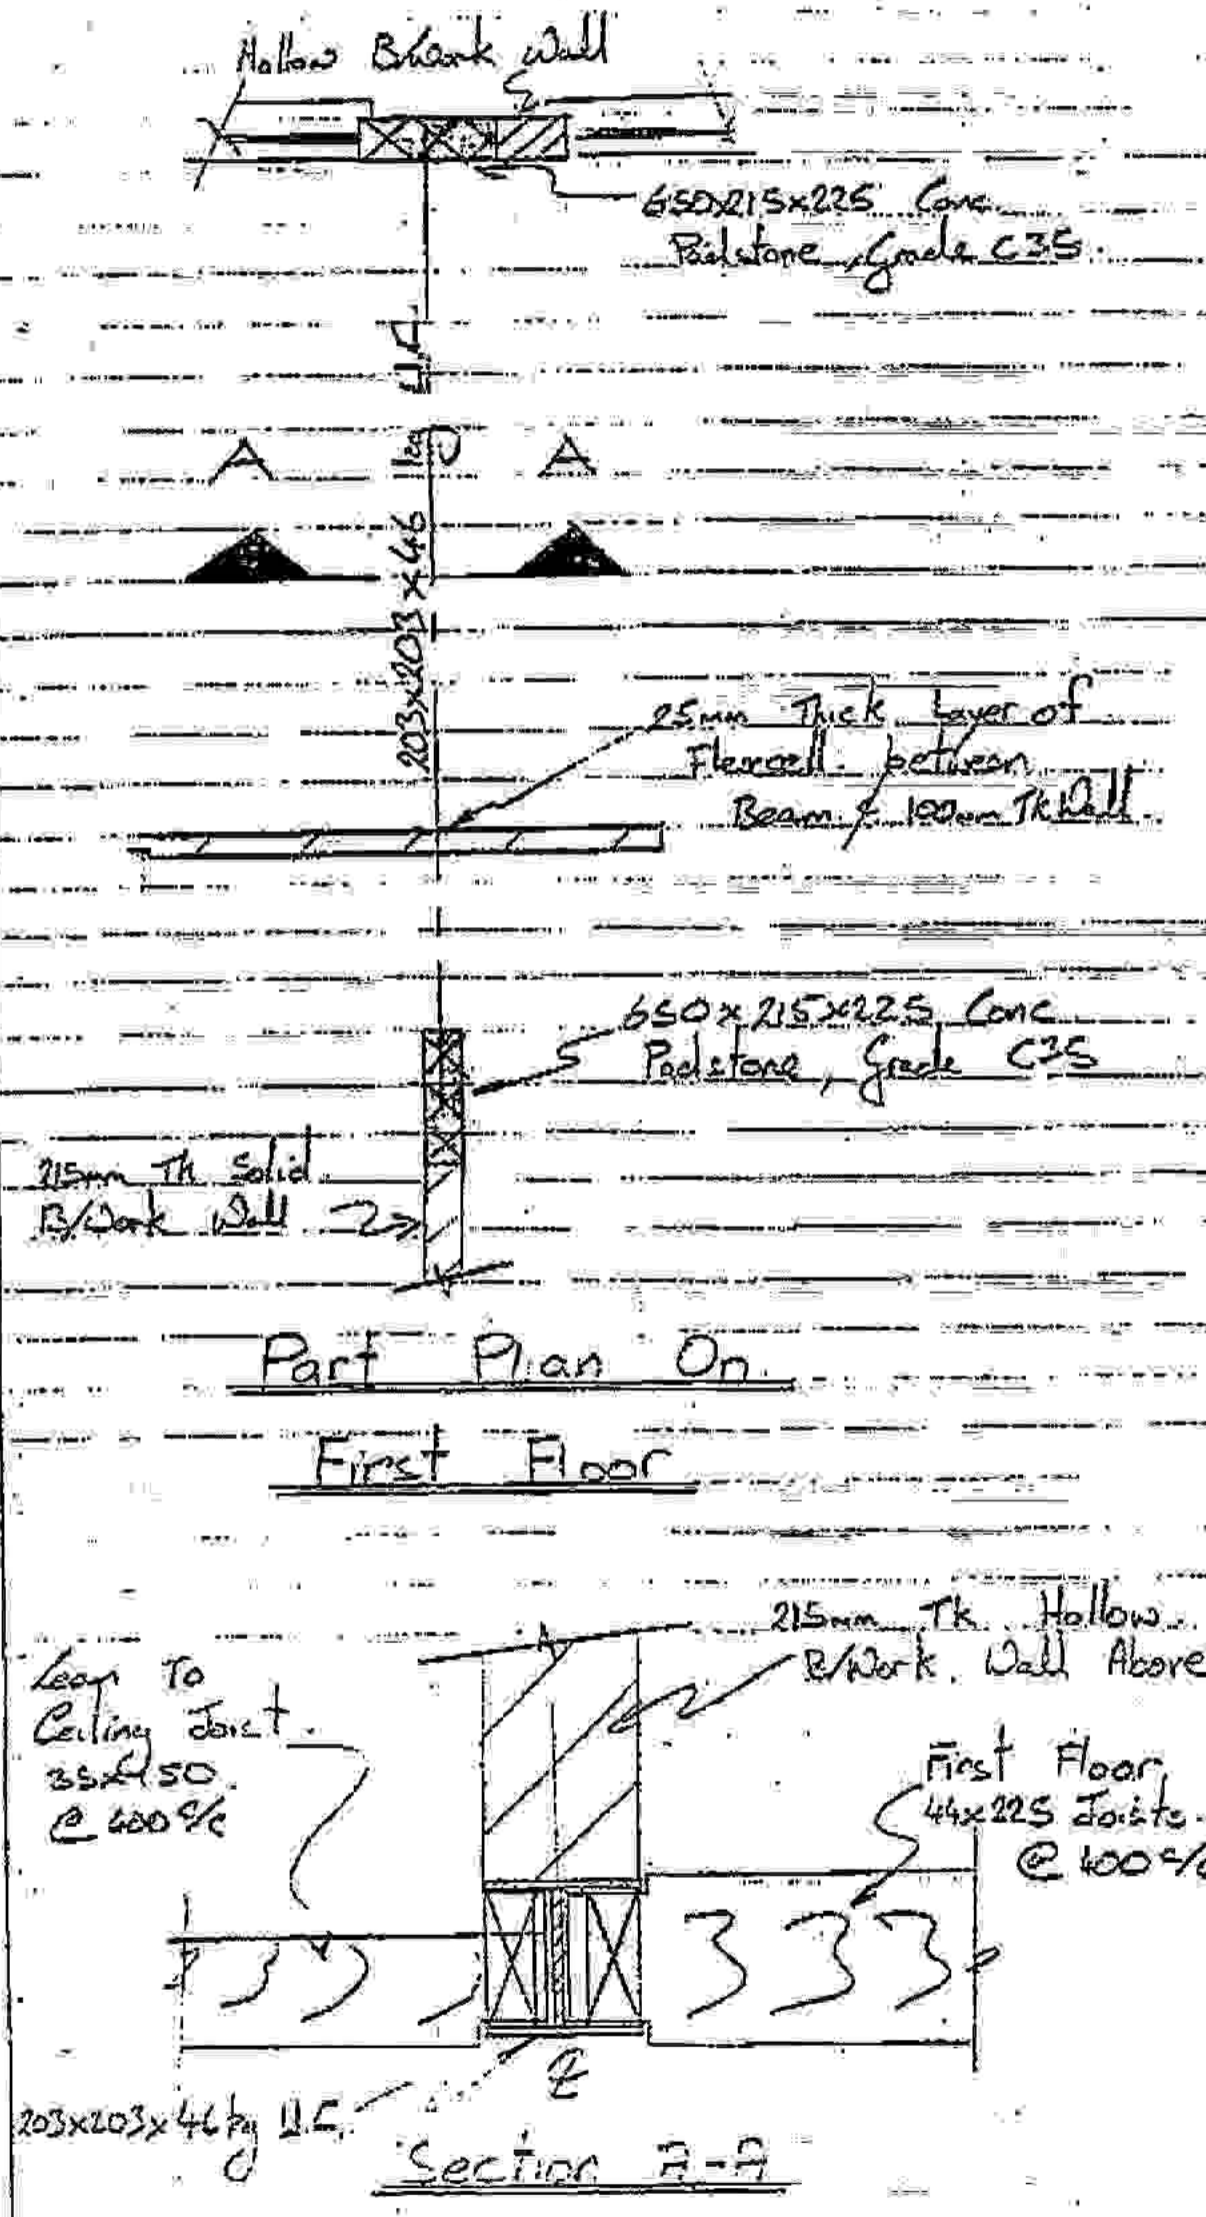 Hollow B/Work Wall
650x215x225 Conc.
Padstone, Grade C35.
A A
203x203x46 kg U.C.
25mm Thick Layer of
Flexcell between
Beam & 100mm Tk Wall.
650x215x225 Conc
Padstone, Grade C35
215mm Tk Solid
B/Work Wall
Part Plan On
First Floor
215mm Tk Hollow
B/Work Wall Above
Lean To
Ceiling Joist
35x150
@ 400 c/c
First Floor
44x225 Joists
@ 400 c/c
203x203x46kg U.C.
Section A-A